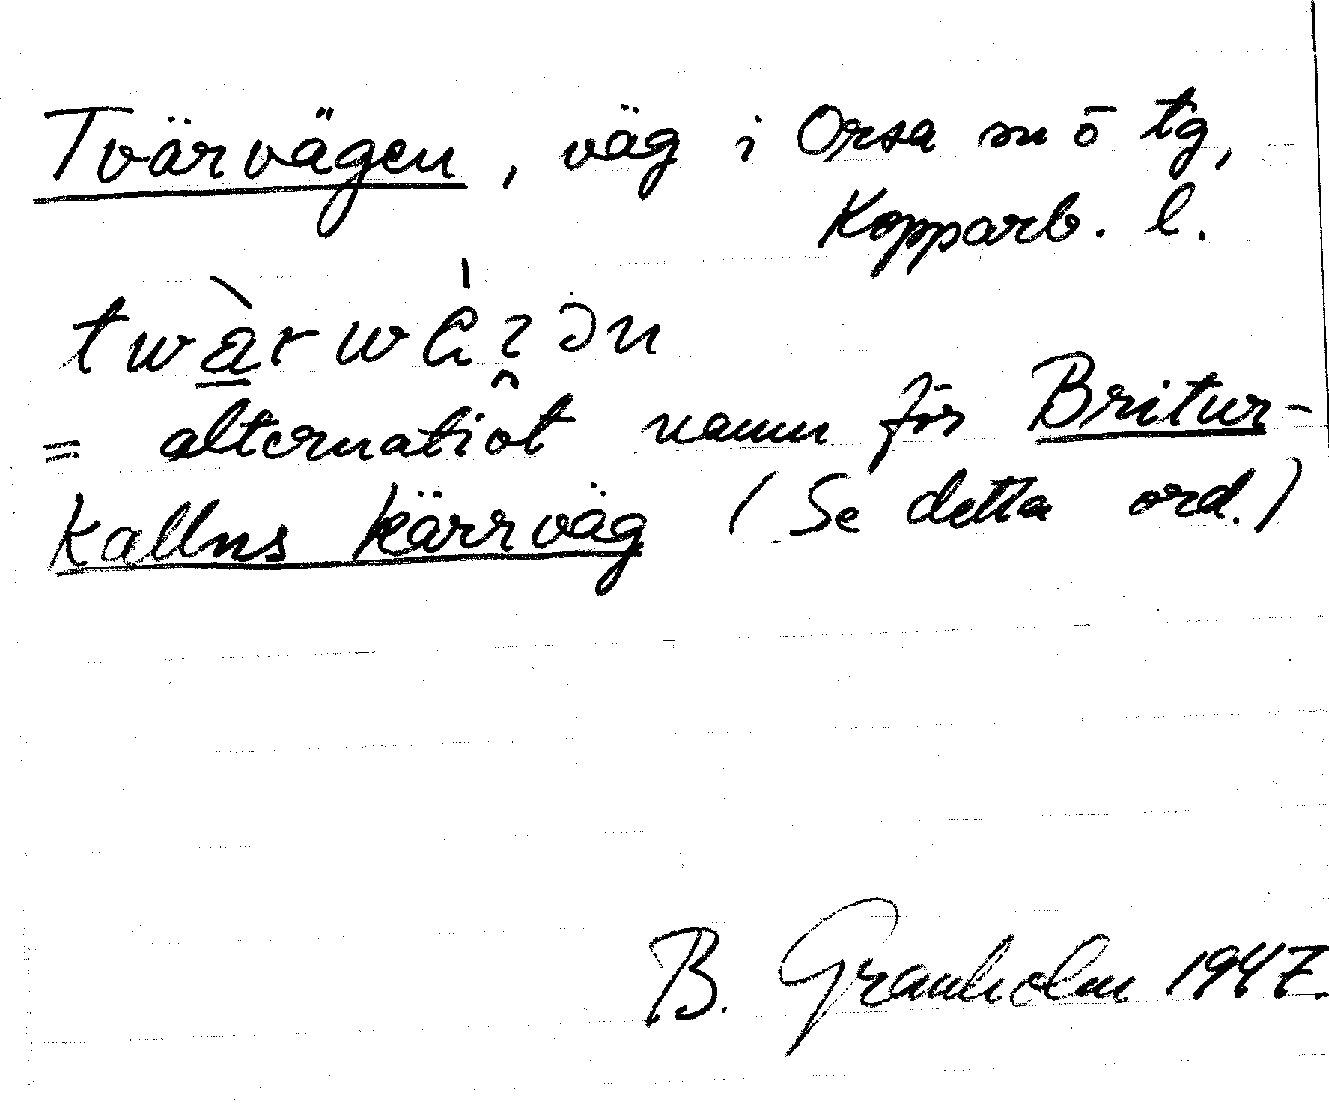 Tvärvägen, väg i Orsa sn ō tg,
Kopparb. l.
= alternativt namn för Britur-
kallns kärrväg (Se detta ord.)
B. Granholm 1947.